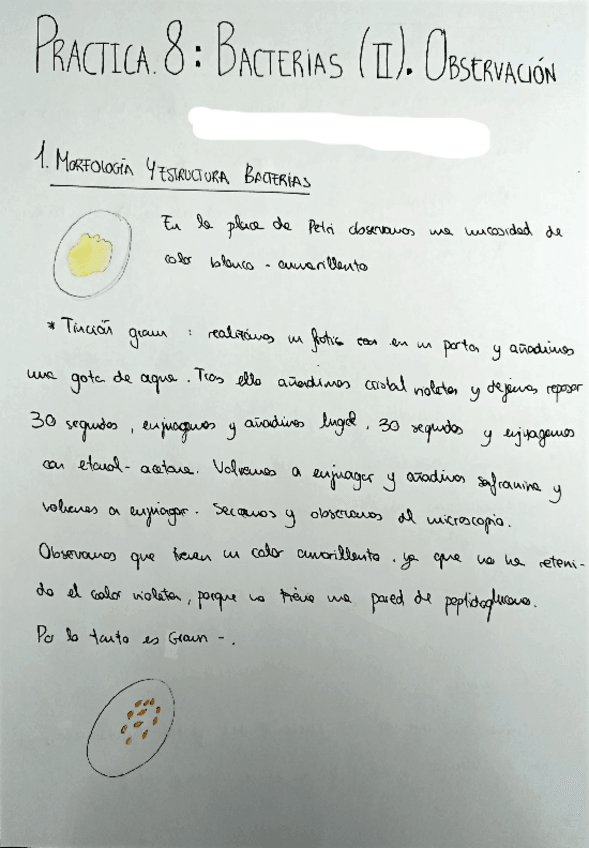 PRACTICA. 8: BACTERIAS (II). OBSERVACIÓN
1. MORFOLOGÍA Y ESTRUCTURA BACTERIAS
En la placa de Petri observamos una mucosidad de
color blanco - amarillento
* Tinción gram : realizamos un frotis con en un porta y añadimos
una gota de agua. Tras ello añadimos cristal violeta y dejamos reposar
30 segundos, enjuagamos y añadimos lugol, 30 segundos y enjuagamos
con etanol - acetona. Volvemos a enjuagar y añadimos safranina y
volvemos a enjuagar. Secamos y observamos al microscopio.
Observamos que tienen un color amarillento, ya que no ha reteni-
do el color violeta, porque no tiene una pared de peptidoglucano.
Por lo tanto es Gram -.